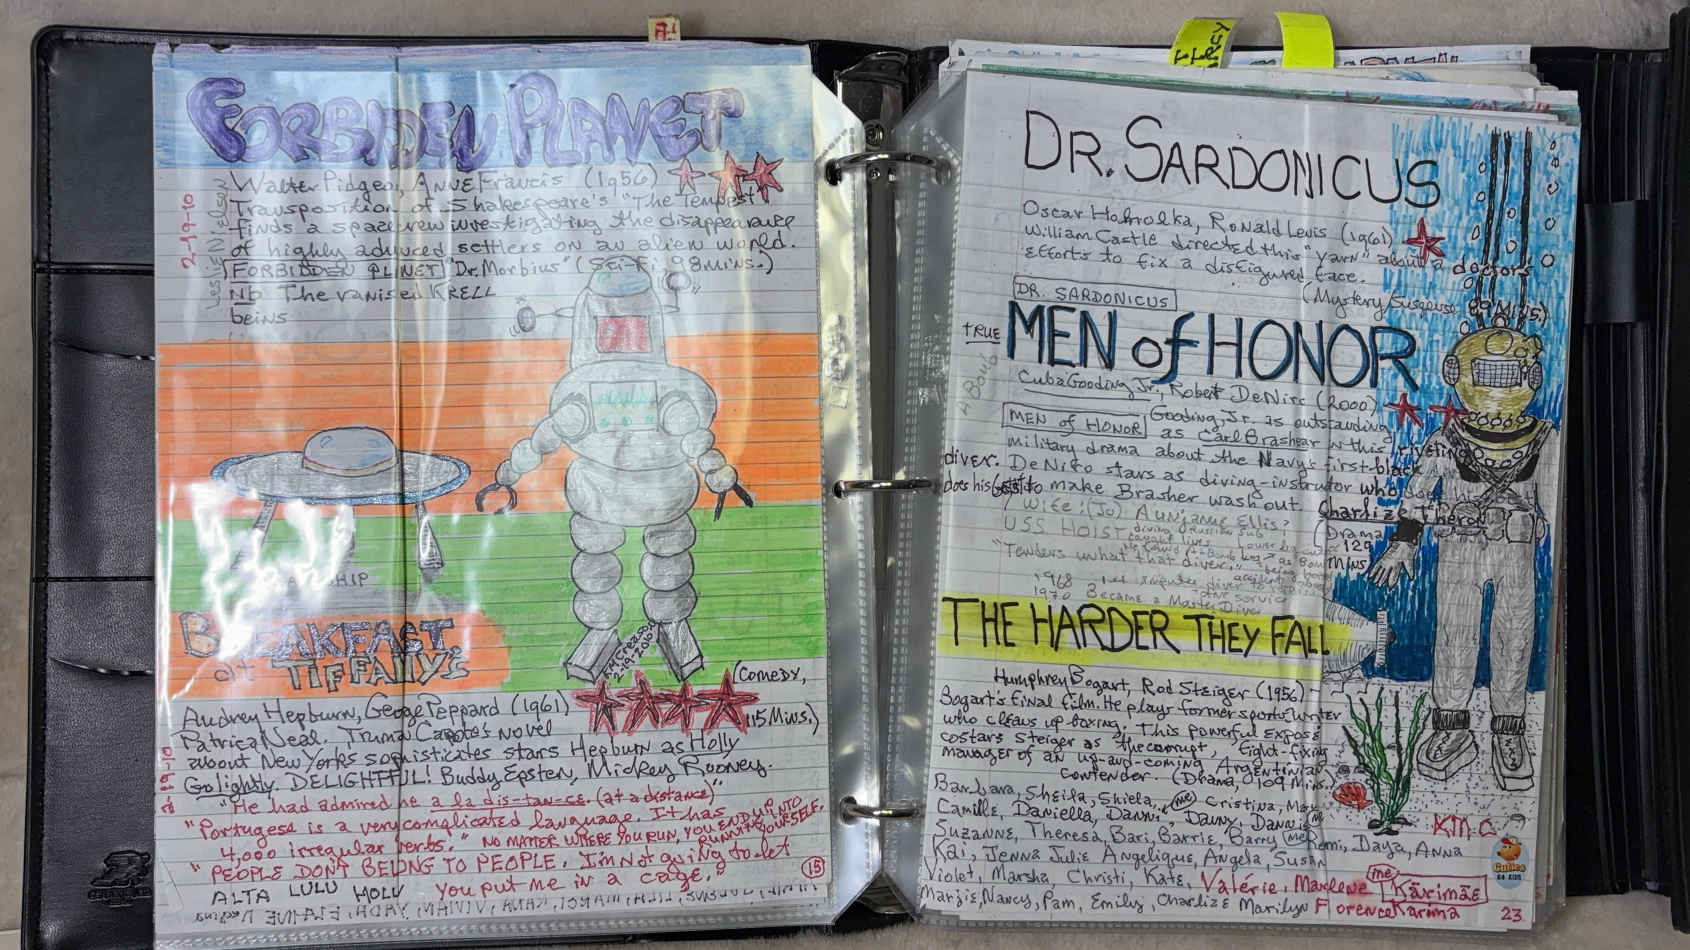 FORBIDEN PLANET
Walter Pidgeon, Anne Francis (1956)
Transposition of Shakespeare's "The Tempest"
finds a spacecrew investigating the disappearance
of highly advnced settlers on an alien world.
FORBIDDEN PLANET "Dr. Morbius" (Sci-Fi, 98 mins.)
Nb The vanised KRELL
beins
2-19-10
Leslie Nielson
KMCreason
2-19-2010
BREAKFAST
at TIFFANY'S
(Comedy,
Audrey Hepburn, George Peppard (1961)
115 Mins.)
Patrica Neal. Truman Capote's Novel
about New York's sophisticates stars Hepburn as Holly
Golightly. DELIGHTFUL! Buddy Epsten, Mickey Rooney.
2-19-10
"He had admired me a la dis-tan-ce. (at a distance)"
"Portugese is a very complicated language. It has
4,000 irregular verbs." NO MATTER WHERE YOU RUN, YOU END UP INTO
RUNNING YOURSELF.
"PEOPLE DON'T BELONG TO PEOPLE. I'm Not going to let
you put me in a cage."
ALTA LULU HOLLY
15
DR. SARDONICUS
Oscar Homolka, Ronald Lewis (1961)
William Castle directed this "yarn" about a doctor's
efforts to fix a disfigured face.
DR. SARDONICUS
(Mystery/Suspense, 89 Mins.)
TRUE
MEN of HONOR
Cuba Gooding Jr., Robert DeNiro (2000)
MEN of HONOR Gooding, Jr. as outstanding
as Carl Brashear in this riveting
military drama about the Navy's first-black
diver. DeNiro stars as diving-instrutor who does his
does his best to make Brasher wash out.
Charlize Theron
(Wife: (Jo) Aunjanue Ellis?
(Drama
129
Mins
USS HOIST
"Tenders what that diver,"
1968
1970 Became a Master Diver
THE HARDER THEY FALL
Humphrey Bogart, Rod Steiger (1956)
Bogart's final film. He plays former sports writer
who cleans up boxing. This powerful exposé
costars Steiger as the corrupt, fight-fixing
manager of an up-and-coming Argentinian
contender. (Drama, 109 Mins.)
Barbara, Sheila, Shiela, (me) Cristina,
Camille, Daniella, Danni, Danny, Danni
Suzanne, Theresa, Bari, Barrie, Barry (me) Remi, Daya, Anna
Kai, Jenna Julie Angelique, Angela, Susan
Violet, Marsha, Christi, Kate, Valérie, Marlene (me) Kārimāe
Margie, Nancy, Pam, Emily, Charlize Marilyn Florence Karima
KMC
23